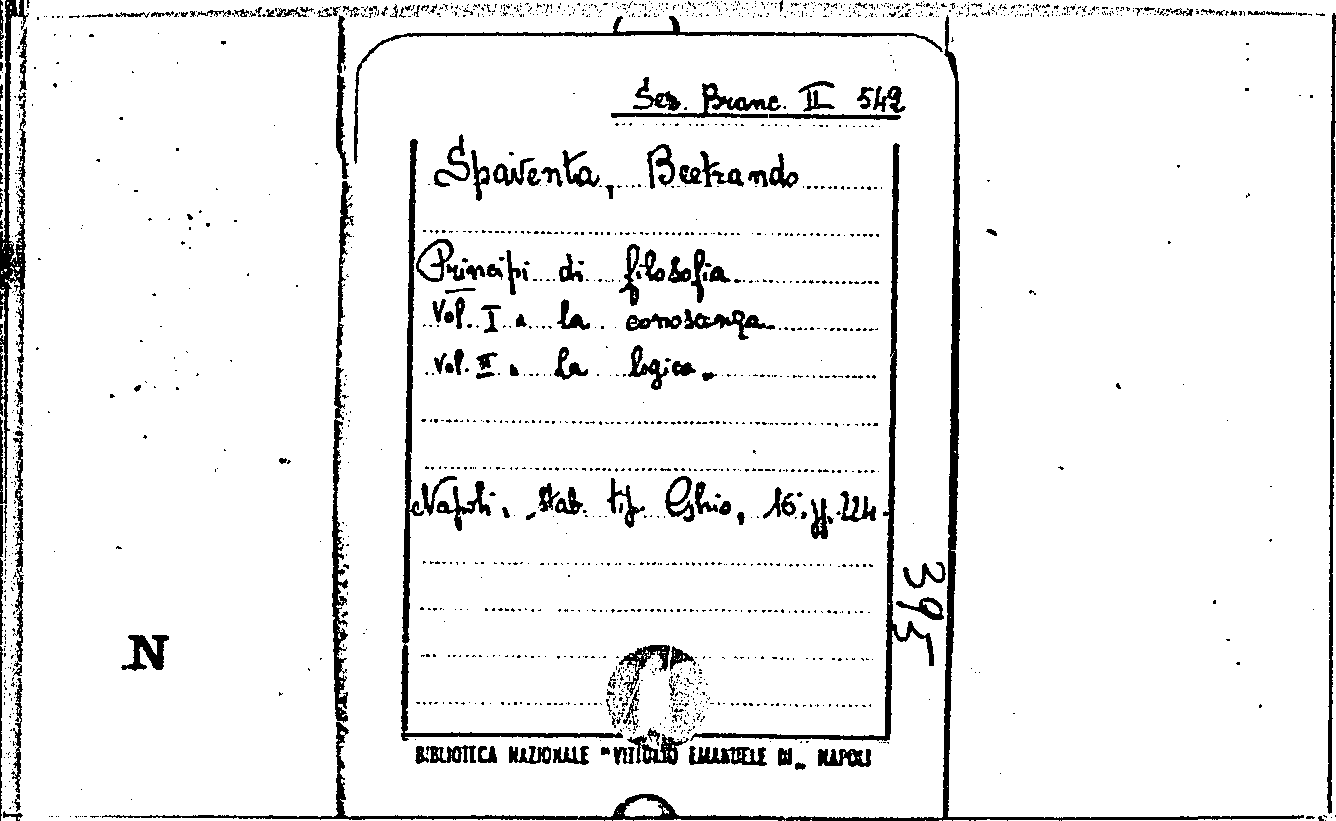 Sez. Branc. II 542
Spaventa, Bertrando
Principi di filosofia
Vol. I. la conosanza
Vol. II. la logica.
Napoli, Stab. tip. Ghio, 16. pp. 224.
395
N
BIBLIOTECA NAZIONALE "VITTORIO EMANUELE III" NAPOLI